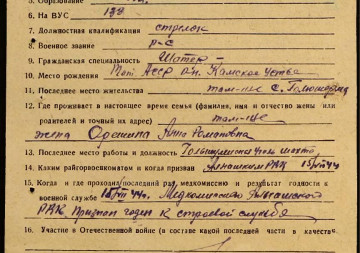 5. Образование
6. На ВУС 133
7. Должностная квалификация стрелок
8. Военное звание р-с
9. Гражданская специальность Шахтер
10. Место рождения Тат. Асср р-н. Камское Устье
11. Последнее место жительства там-же с.
12. Где проживает в настоящее время семья (фамилия, имя и отчество жены или
родителей и точный их адрес) там-же
жена Анна Романовна
13. Последнее место работы и должность шахта
14. Каким райгорвоенкоматом и когда призван РВК
15. Когда и где проходил последний раз медкомиссию и результат годности к
военной службе 44г. Медкомиссия
РВК. Признан годен к строевой службе
16. Участие в Отечественной войне (в составе какой последней части в качестве